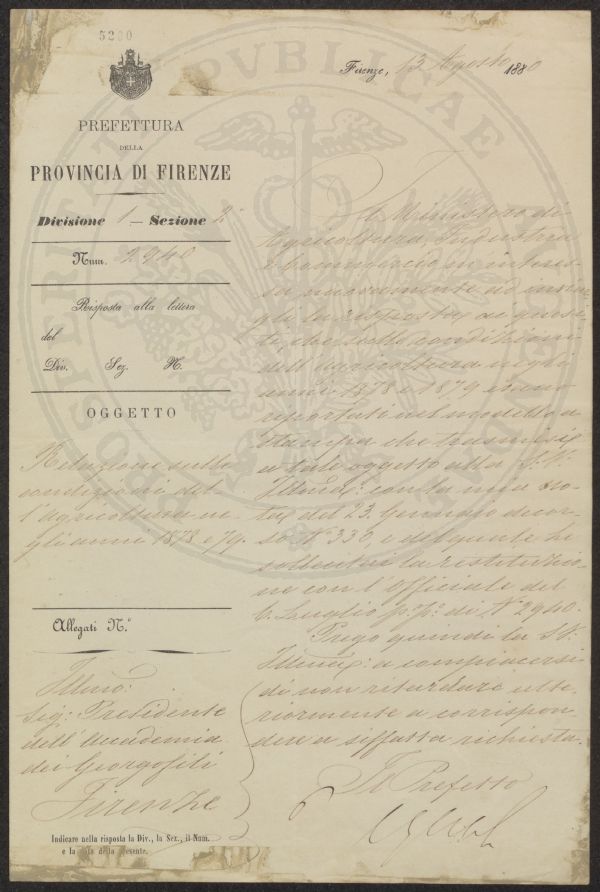 5200
Firenze, 13 Agosto 1880
PREFETTURA
DELLA
PROVINCIA DI FIRENZE
Divisione 1 — Sezione 2ª
Num. 2940
Risposta alla lettera
del
Div. Sez. N.
OGGETTO
Relazione sulle
condizioni del
l'agricoltura ne
gli anni 1878 e 79.
Allegati N.°
Illmo:
Sig: Presidente
dell'Accademia
dei Georgofili
Firenze
Indicare nella risposta la Div., la Sez., il Num.
e la data della presente.
Il Ministero di
Agricoltura, Industria
e Commercio, m'interes
sa nuovamente ad inviar
gli la risposta ai quesi
ti, che sulle condizioni
dell'Agricoltura negli
anni 1878 e 1879 erano
riportati nel modello a
stampa che trasmisi
a tale oggetto alla S. V.
Illma: con la mia no
ta del 23. Gennaio decor
so N° 330, e del quale Le
sollecitai la restituzio
ne con l'Officiale del
6. Luglio p.° p.° di N° 2940.
Prego quindi la S. V.
Illma: a compiacersi
di non ritardare ulte
riormente a corrispon
dere a siffatta richiesta.
Il Prefetto
POSTERITATI PUBLICAE